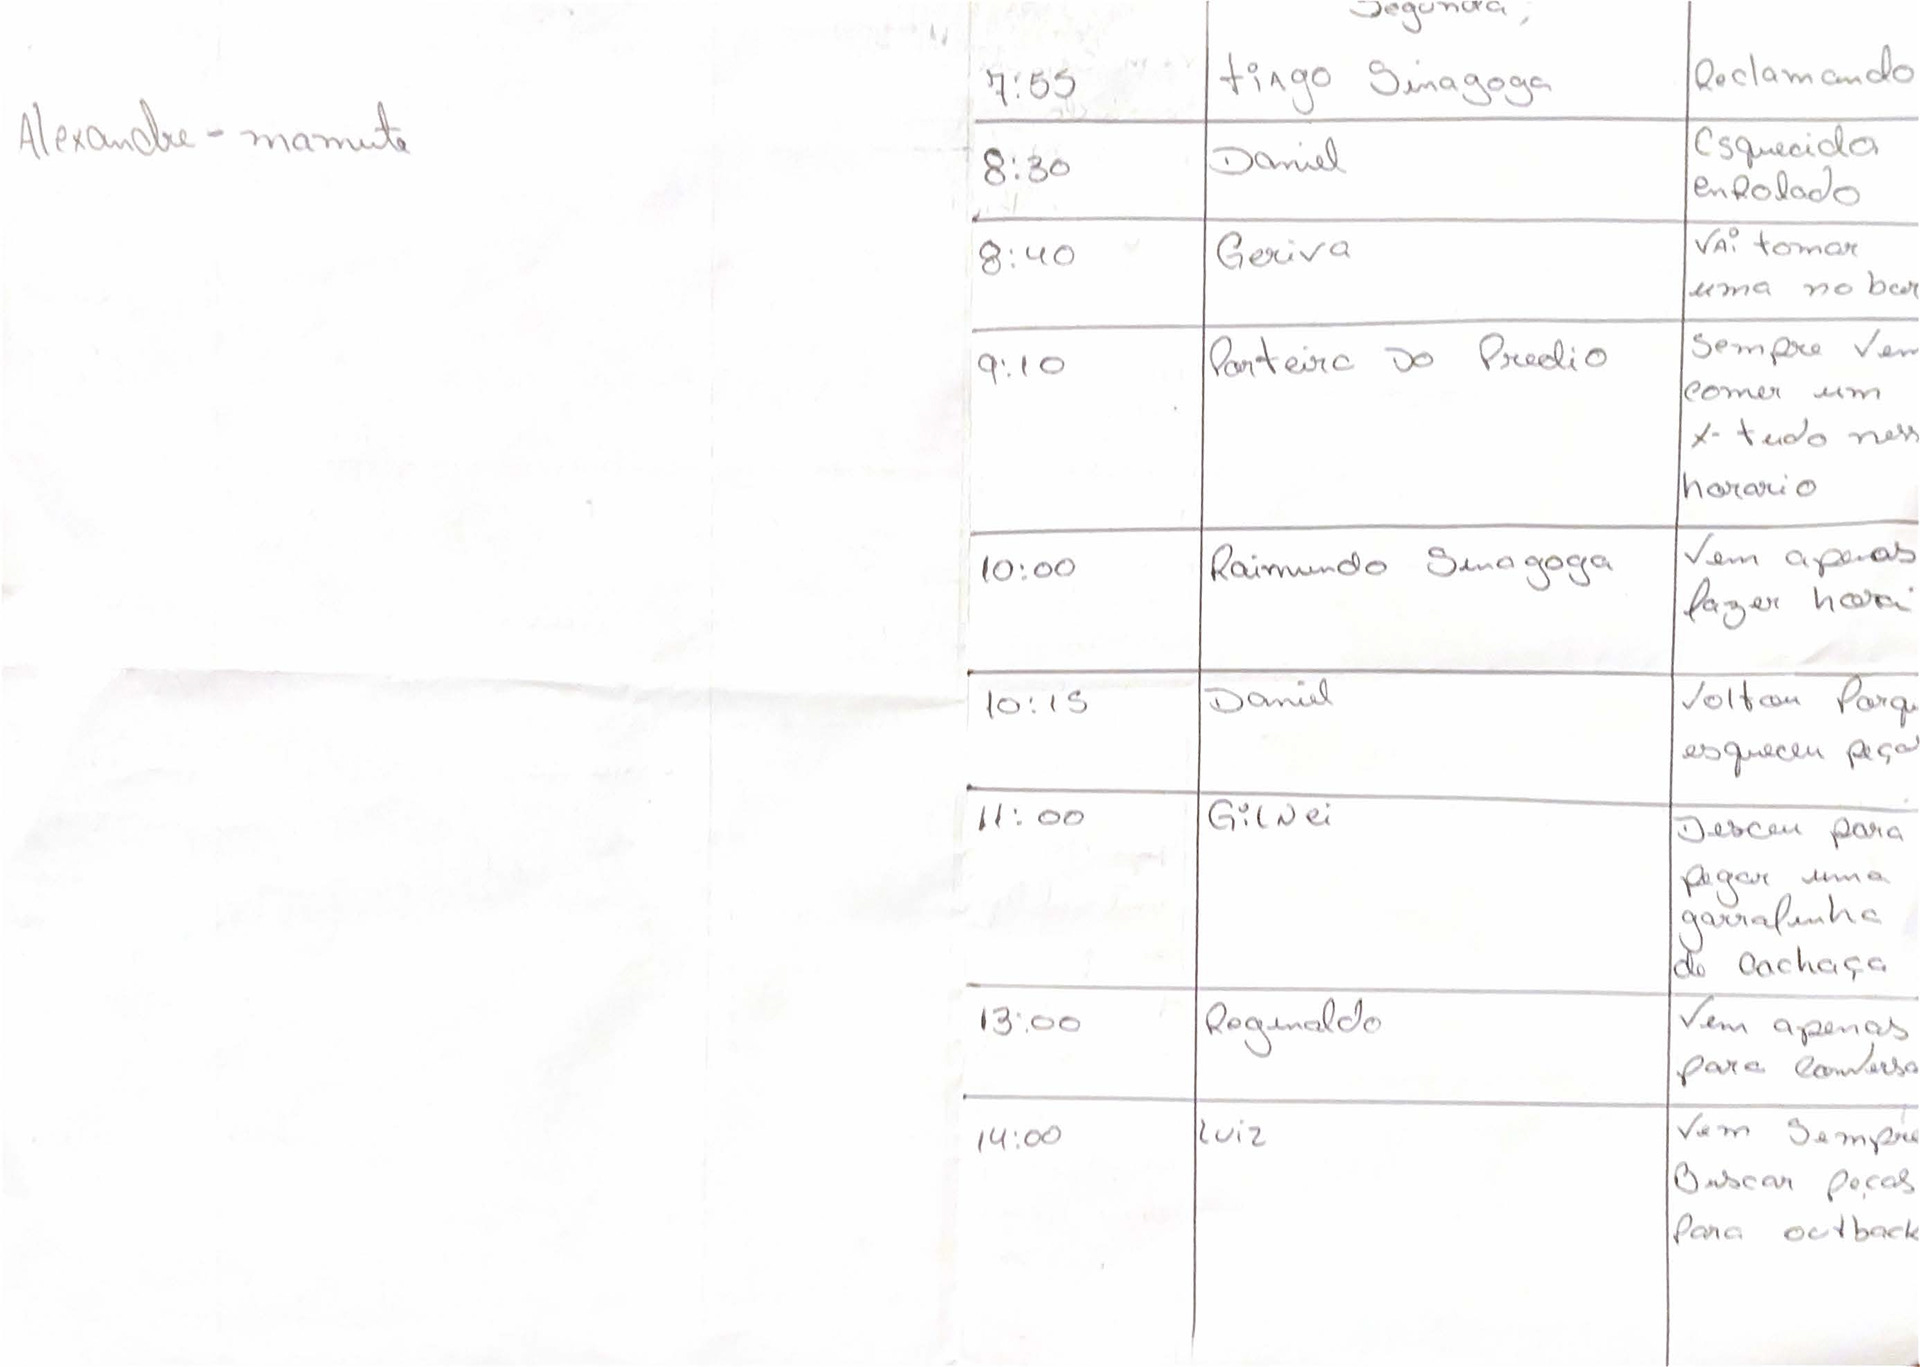 Alexandre - mamute
Segunda,
7:55 tiago Sinagoga Reclamando
8:30 Daniel Esquecido
enRolado
8:40 Geriva VAi tomar
uma no bar
9:10 Porteiro Do Predio Sempre Vem
comer um
X-tudo ness
horario
10:00 Raimundo Sinagoga Vem apenas
fazer hora
10:15 Daniel Voltou Porqu
esqueceu peça
11:00 GilNei Desceu para
pegar uma
garrafinha
de Cachaça
13:00 Reginaldo Vem apenas
para Conversa
14:00 Luiz Vem Sempre
Buscar peças
Para outback